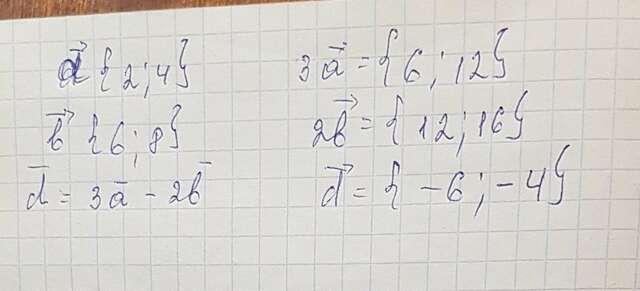 a⃗ {2; 4}
b⃗ {6; 8}
d̅ = 3a̅ - 2b̅
3a⃗ = {6; 12}
2b⃗ = {12; 16}
d⃗ = {-6; -4}